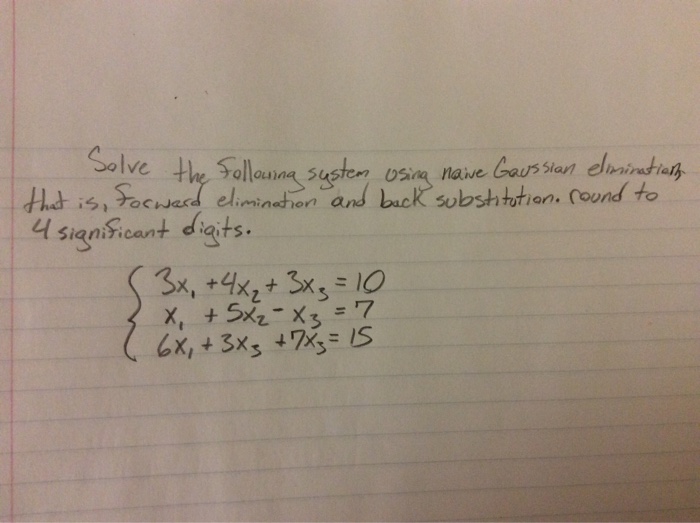 Solve the following system using naive Gaussian elimination,
that is, forward elimination and back substitution. round to
4 significant digits.
3x₁ + 4x₂ + 3x₃ = 10
x₁ + 5x₂ - x₃ = 7
6x₁ + 3x₃ + 7x₃ = 15